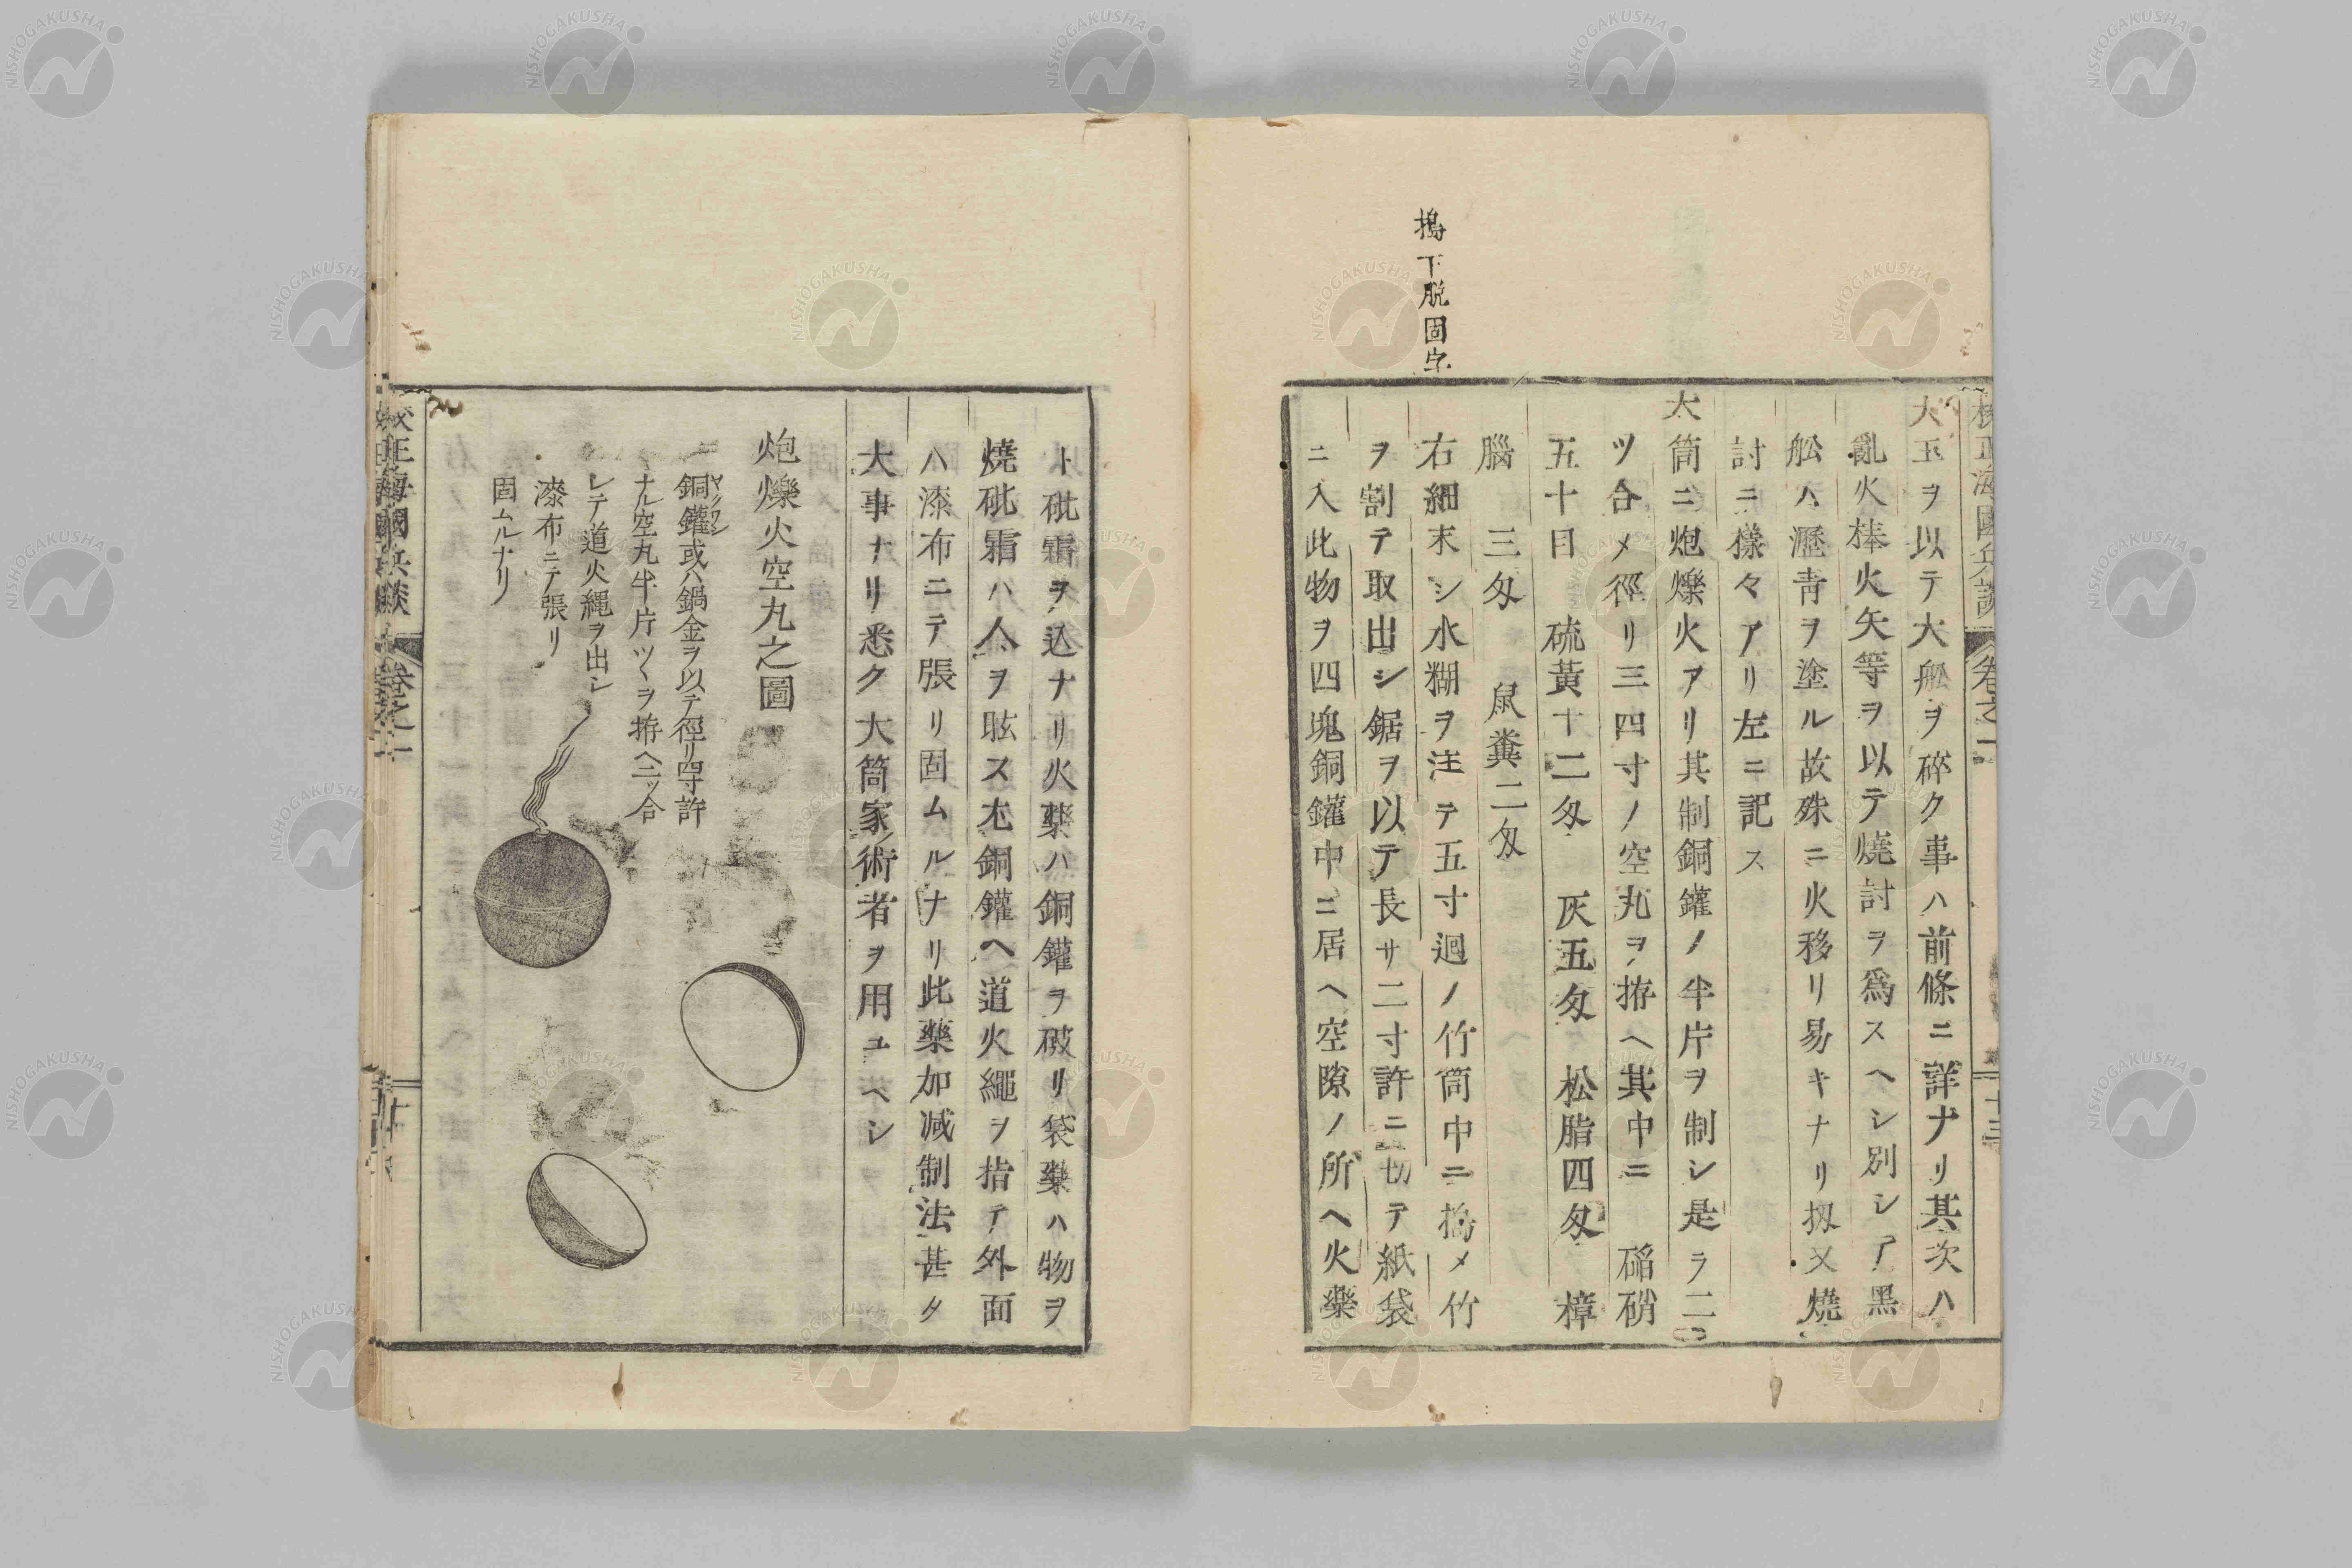 搗下脱固字
大玉ヲ以テ大舩ヲ碎ク事ハ前條ニ詳ナリ其次ハ
亂火棒火矢等ヲ以テ燒討ヲ爲スヘシ別シテ黑
舩ハ瀝青ヲ塗ル故殊ニ火移リ易キナリ扨又燒
討ニ樣々アリ左ニ記ス
大筒ニ炮爍火アリ其制銅鑵ノ半片ヲ制シ是ヲ二
ツ合メ徑リ三四寸ノ空丸ヲ拵ヘ其中ニ 硝
五十目 硫黃十二匁 灰五匁 松脂四匁 樟
腦 三匁 鼠糞二匁
右細末シ水糊ヲ注テ五寸迴ノ竹筒中ニ搗メ竹
ヲ割テ取出シ鋸ヲ以テ長サ二寸許ニ切テ紙袋
ニ入此物ヲ四塊銅鑵中ニ居ヘ空隙ノ所ヘ火藥
校正海國兵談 卷之一 十三
ト砒霜ヲ込ナリ火藥ハ銅鑵ヲ破リ袋藥ハ物ヲ
燒砒霜ハ人ヲ眩ス尤銅鑵ヘ道火繩ヲ指テ外面
ハ漆布ニテ張リ固ムルナリ此藥加减制法甚タ
大事ナリ悉ク大筒家ノ術者ヲ用ユヘシ
炮爍火空丸之圖
銅鑵或ハ鍋金ヲ以テ徑リ四寸許
ナル空丸半片ツヽヲ拵ヘ二ッ合
レテ道火縄ヲ出シ
漆布ニテ張リ
固ムルナリ
校正海國兵談 卷之一